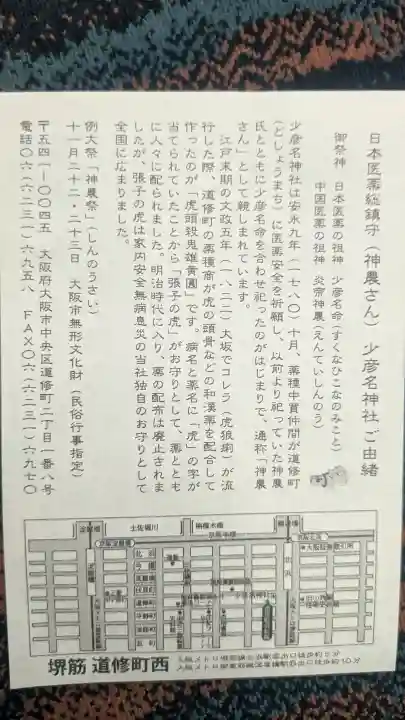 日本医薬総鎮守(神農さん) 少彦名神社ご由緒
御祭神 日本医薬の祖神 少彦名命(すくなひこなのみこと)
中国医薬の祖神 炎帝神農(えんていしんのう)
少彦名神社は安永九年(一七八〇)十月、薬種中買仲間が道修町
(どしょうまち)に医薬安全を祈願し、以前より祀っていた神農
氏とともに少彦名命を合わせ祀ったのがはじまりで、通称「神農
さん」として親しまれています。
江戸末期の文政五年(一八二二)大坂でコレラ(虎狼痢)が流
行した際、道修町の薬種商が虎の頭骨などの和漢薬を配合して
作ったのが「虎頭殺鬼雄黄圓」です。病名と薬名に「虎」の字が
当てられていたことから「張子の虎」がお守りとして、薬ととも
に人々に配られました。明治時代に入り、薬の配布は廃止されま
したが、張子の虎は家内安全無病息災の当社独自のお守りとして
全国に広まりました。
例大祭「神農祭」(しんのうさい)
十一月二十二・二十三日 大阪市無形文化財(民俗行事指定)
〒五四一-〇〇四五 大阪府大阪市中央区道修町二丁目一番八号
電話〇六(六二三一)六九五八 FAX〇六(六二三一)六九七〇
淀屋橋
土佐堀川
栴檀木橋
難波橋
堺筋 道修町西